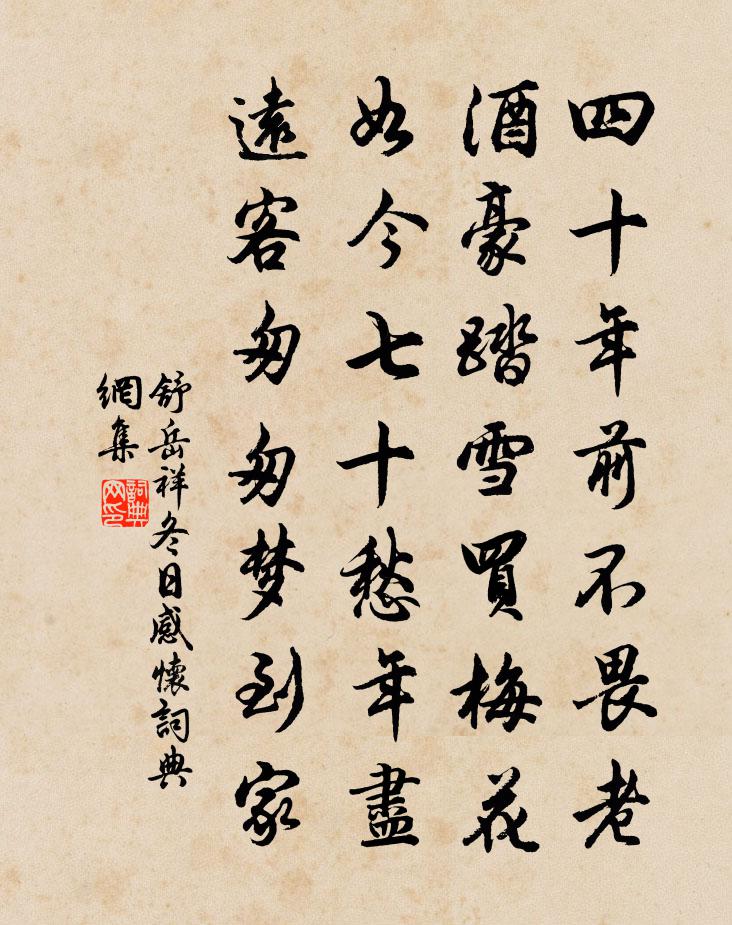 四十年前不畏老
酒豪踏雪買梅花
如今七十愁年盡
遠客匆匆梦到家
舒岳祥冬日感懷詞典
網集
詞典
网印